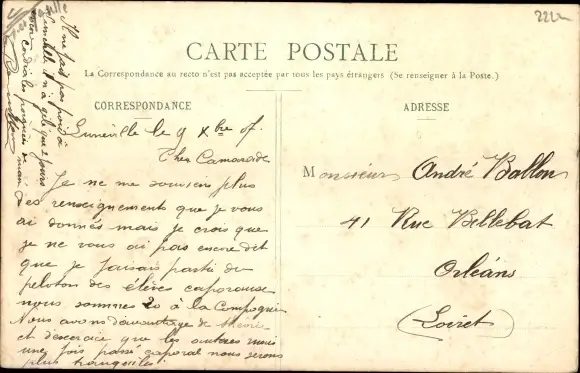 CARTE POSTALE
La Correspondance au recto n'est pas acceptée par tous les pays étrangers (Se renseigner à la Poste.)
CORRESPONDANCE
Lunéville le 9 Xbre 07.
Cher Camarade
Je ne me souviens plus
des renseignements que je vous
ai donnés mais je crois que
je ne vous ai pas encore dit
que je faisais partie du
peloton des élèves caporaux
nous sommes 20 à la Compagnie
Nous avons davantage de théorie
et d'exercice que les autres mais
une fois passé caporal nous serons
plus tranquilles.
Il ne fait pas froid à
Lunéville. Il n'a gelé que 2 jours
Cordiales poignées de main
ADRESSE
Monsieur André Ballon
41 Rue Bellebat
Orléans
(Loiret)